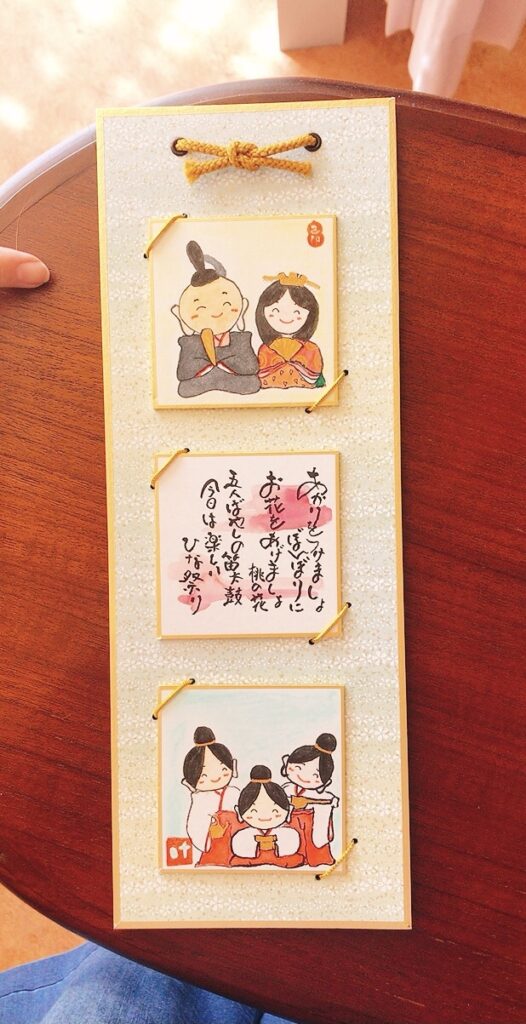 あかりをつけましょ
ぼんぼりに
お花をあげましょ
桃の花
五人ばやしの笛太鼓
今日は楽しい
ひな祭り